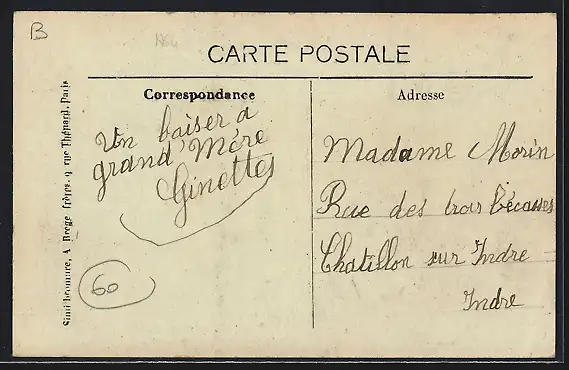 B
CARTE POSTALE
Correspondance
Adresse
Un baiser a
grand' Mère
Ginettes
Madame Morin
Rue des trois Bécasses
Chatillon sur Indre
Indre
60
Simili-bromure, A. Breger frères, 9, rue Thénard, Paris